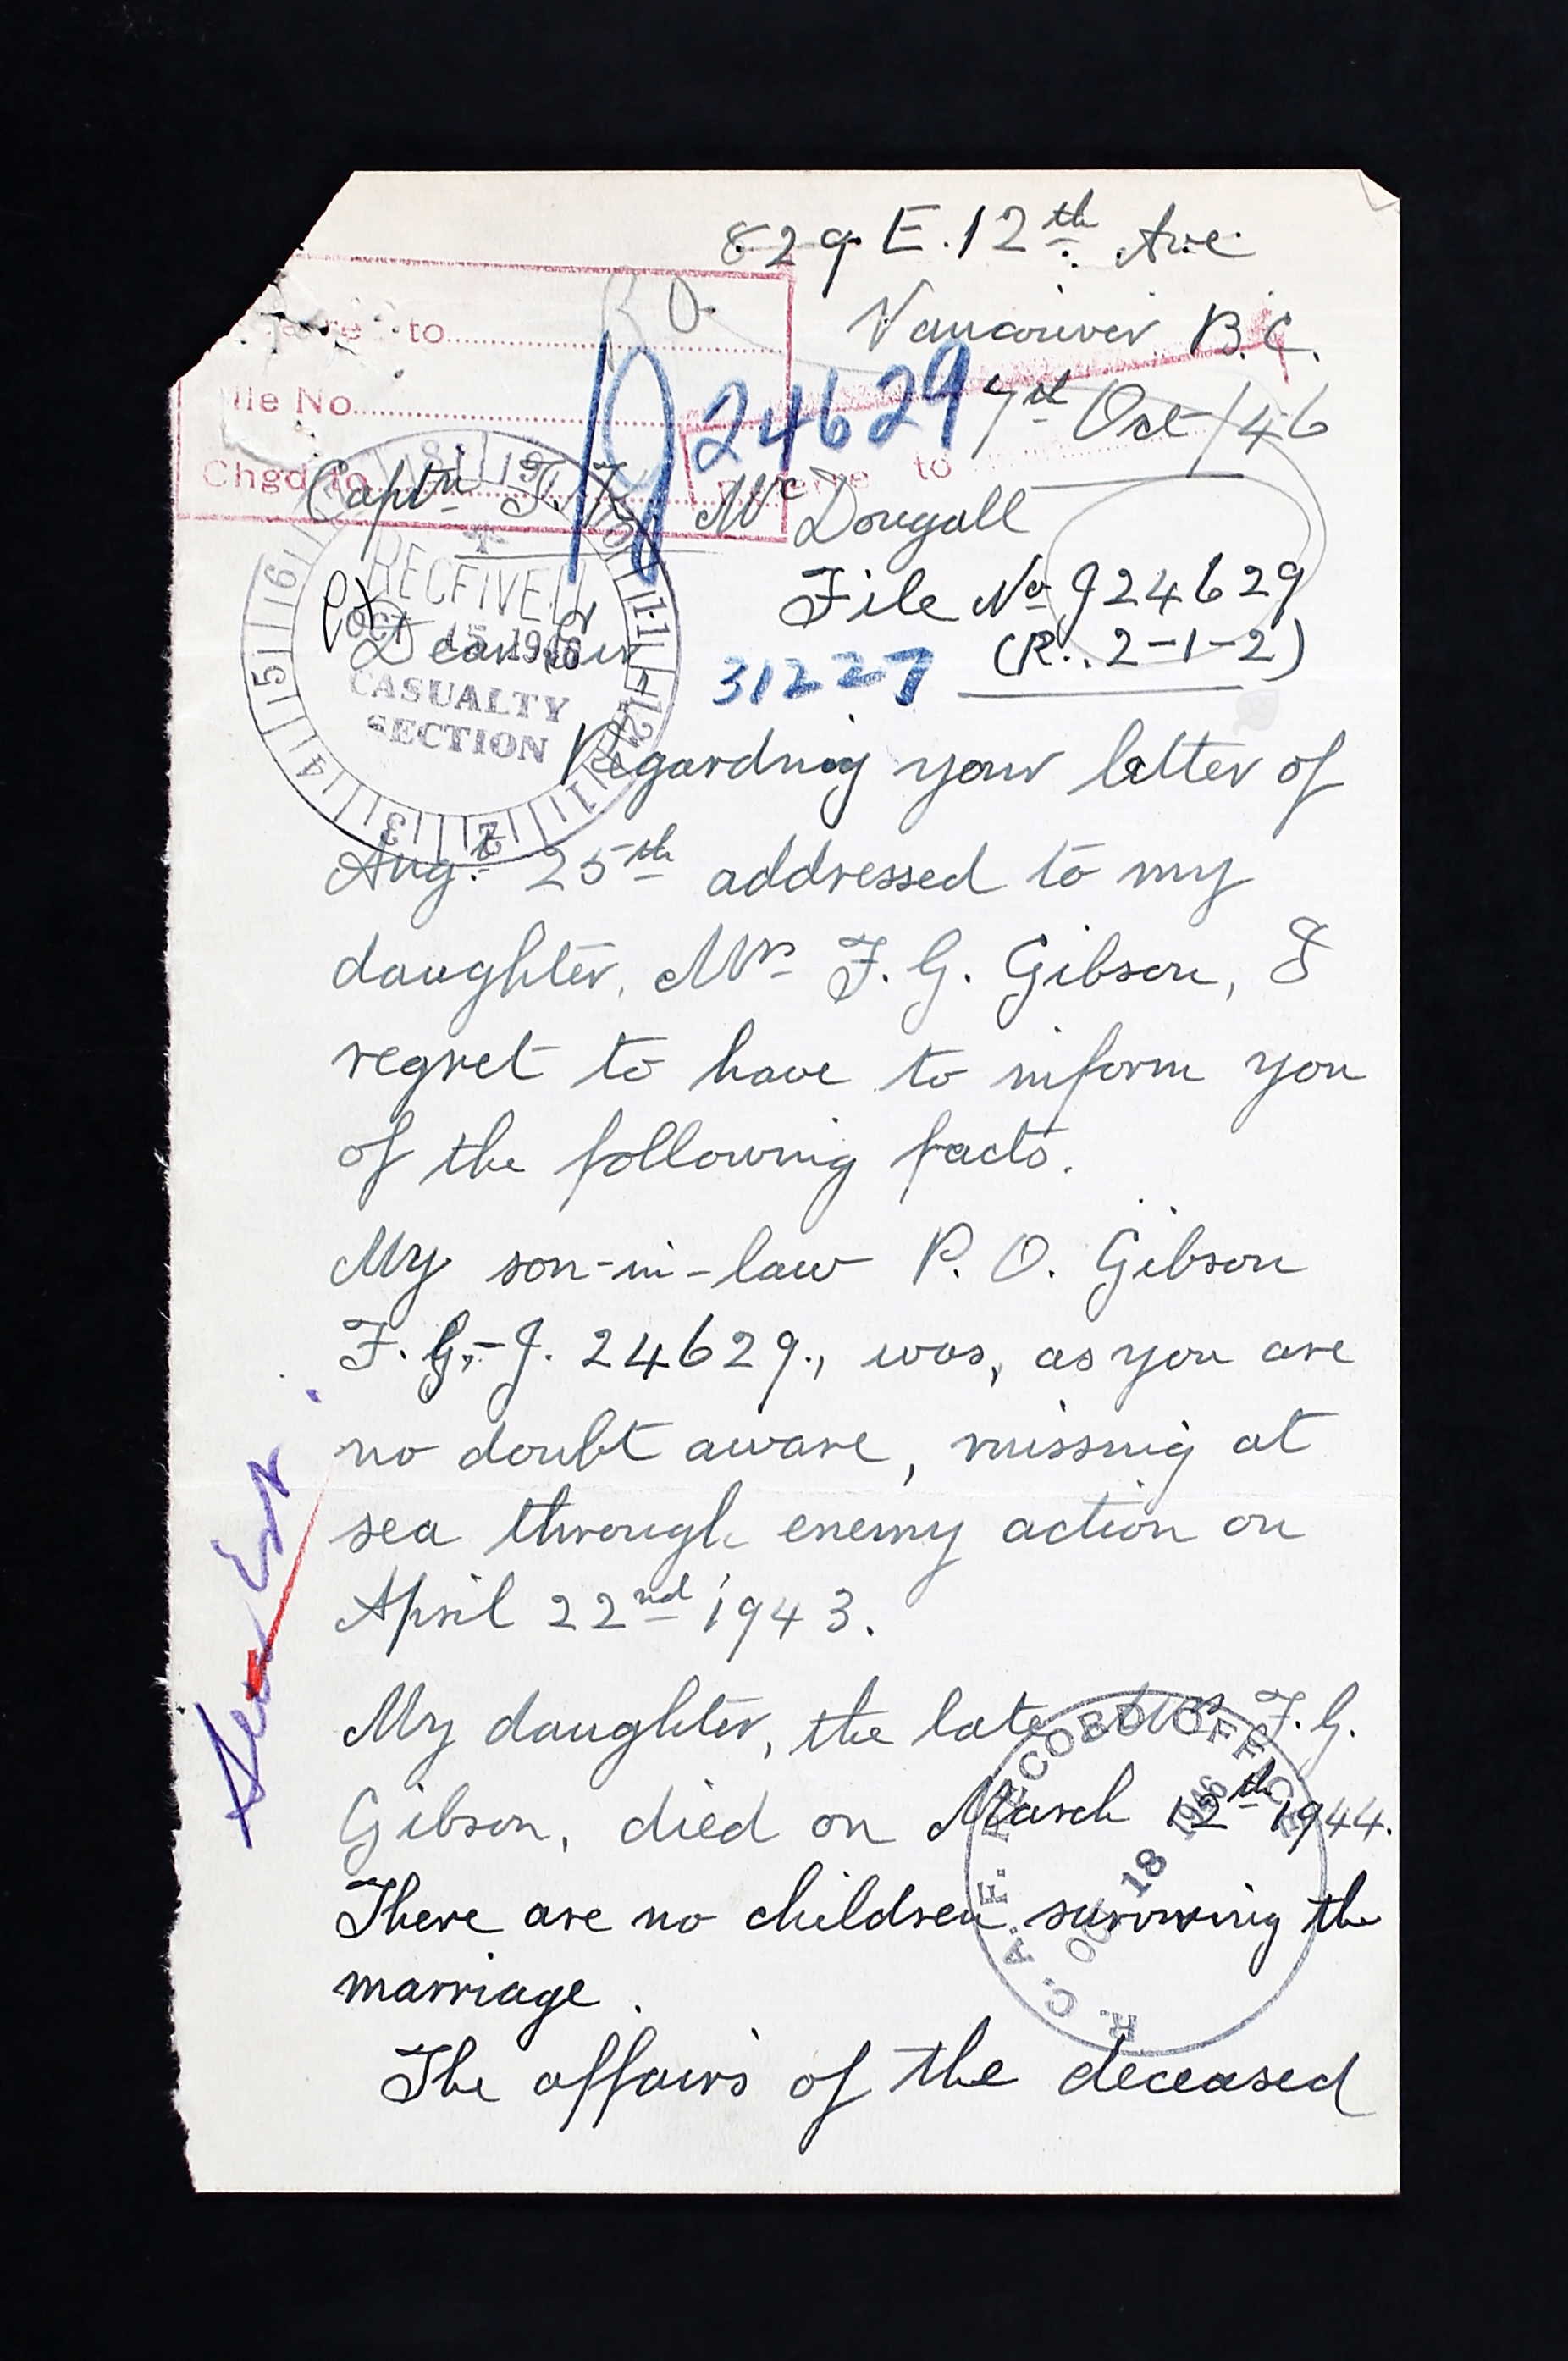 829. E. 12th Ave
Vancouver B.C.
to
File No
24629 7th Oct/46
Chgd to
to
Captn T. McDougall
RECEIVED
File No J24629
OCT 15 1946
Dear Sir
(R.. 2-1-2)
31227
CASUALTY
SECTION
Regarding your letter of
Augt 25th addressed to my
daughter, Mrs F. G. Gibson, I
regret to have to inform you
of the following facts.
My son-in-law P. O. Gibson
F. G,- J. 24629., was, as you are
no doubt aware, missing at
sea through enemy action on
April 22nd 1943.
My daughter, the late Mrs F. G.
Gibson, died on March 12th 1944.
There are no children surviving the
marriage.
The affairs of the deceased
R.C.A.F. RECORD OFFICE
OCT 18 1946